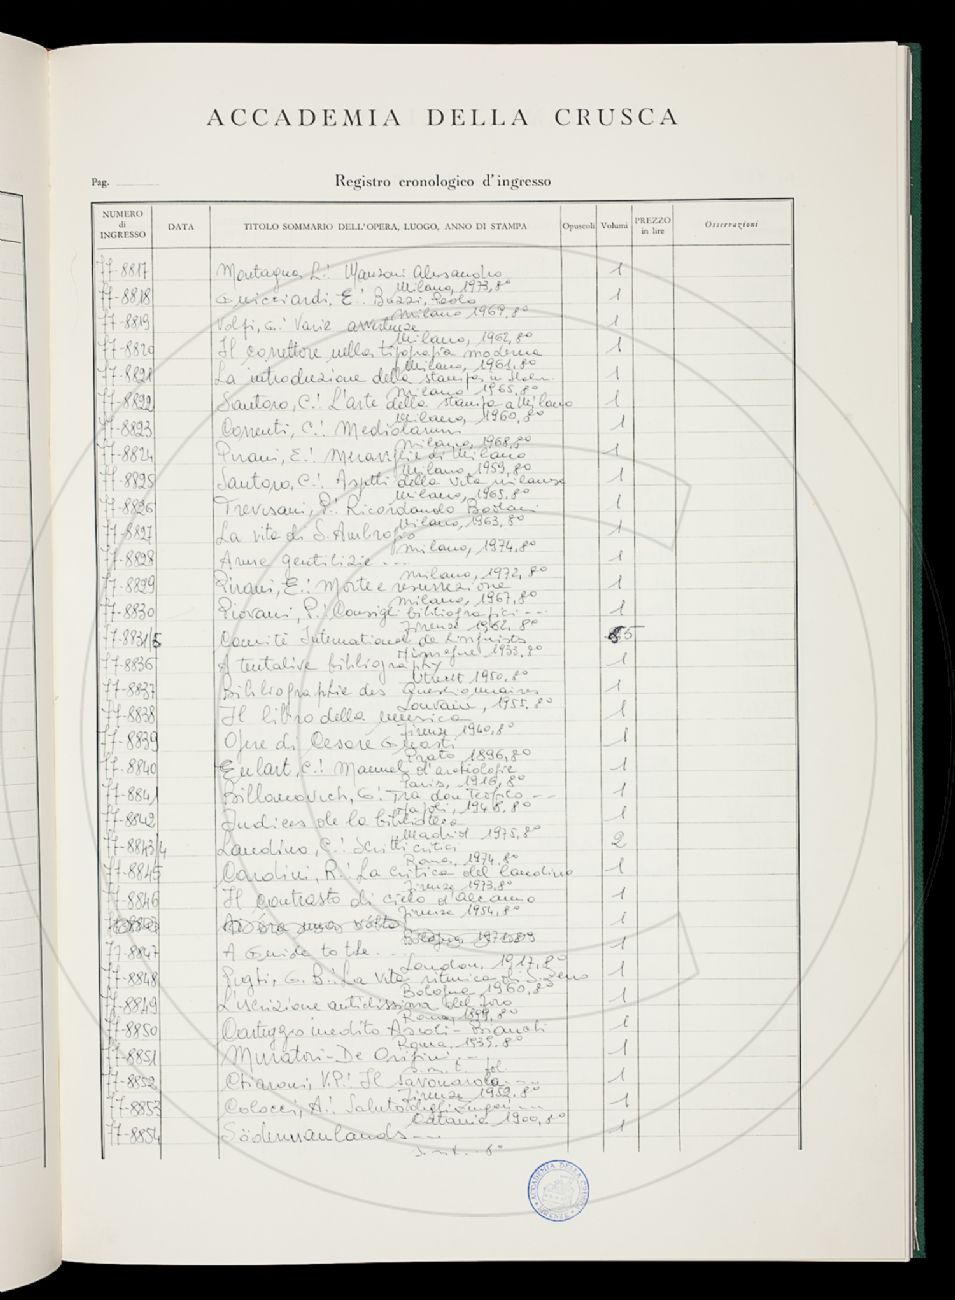 ACCADEMIA DELLA CRUSCA
Pag.
Registro cronologico d'ingresso
NUMERO di INGRESSO DATA TITOLO SOMMARIO DELL'OPERA, LUOGO, ANNO DI STAMPA Opuscoli Volumi PREZZO in lire Osservazioni
77-8817 Montagna, L.: Manzoni Alessandro 1
Milano, 1973, 8°
77-8818 Guicciardi, E.: Buzzi, Paolo 1
Milano 1969, 8°
77-8819 Volpi, G.: Varie avvertenze 1
Milano, 1962, 8°
77-8820 Il correttore nella tipografia moderna 1
Milano, 1961, 8°
77-8821 La introduzione della stampa in 1
Milano 1965, 8°
77-8822 Santoro, C.: L'arte della stampa a Milano 1
Milano, 1960, 8°
77-8823 Correnti, C.: Mediolanum 1
Milano, 1968, 8°
77-8824 Pirani, E.: Meraviglie di Milano 1
Milano, 1959, 8°
77-8825 Santoro, C.: Aspetti della vita milanese 1
Milano, 1965, 8°
77-8826 Trevisani, P.: Ricordando 1
Milano, 1963, 8°
77-8827 La vita di S. Ambrogio 1
Milano, 1974, 8°
77-8828 Arme gentilizie ... 1
Milano, 1972, 8°
77-8829 Pirani, E.: Morte e resurrezione 1
Milano, 1967, 8°
77-8830 Piovani, P.: Consigli bibliografici --- 1
Firenze 1962, 8°
77-8831/5 Comité International de Linguistes 5
1933, 8°
77-8836 A tentative bibliography 1
Utrecht 1950, 8°
77-8837 Bibliographie des Questionnaires 1
Louvain, 1955, 8°
77-8838 Il libro della musica 1
Firenze 1940, 8°
77-8839 Opere di Cesare Guasti 1
Prato 1896, 8°
77-8840 Enlart, C.: Manuel d'archéologie 1
Paris, 1916, 8°
77-8841 Billanovich, G.: Tra don Teofilo --- 1
Napoli, 1948, 8°
77-8842 Indices de la biblioteca 1
Madrid 1975, 8°
77-8843/4 Landino, C.: Scritti critici 2
Roma, 1974, 8°
77-8845 Cardini, R.: La critica del Landino 1
Firenze 1973, 8°
77-8846 Il contrasto di cielo d'Alcamo 1
Firenze 1954, 8°
77-8847 A Guide to the ... 1
London, 1917, 8°
77-8848 Pighi, G. B.: La vita ritmica di S. Zeno 1
Bologna 1960, 8°
77-8849 L'iscrizione antichissima del Foro 1
Roma, 1899, 8°
77-8850 Carteggio inedito Ascoli - Bianchi 1
Roma, 1939, 8°
77-8851 Muratori - De Origini ... 1
s.n.t. fol.
77-8852 Chiaroni, V.P.: Il Savonarola --- 1
Firenze 1952, 8°
77-8853 Colocci, A.: Saluto degli Zingari --- 1
Catania 1900, 8°
77-8854 Södermanlands --- 1
s.n.t. - 8°
ACCADEMIA DELLA CRUSCA
FIRENZE